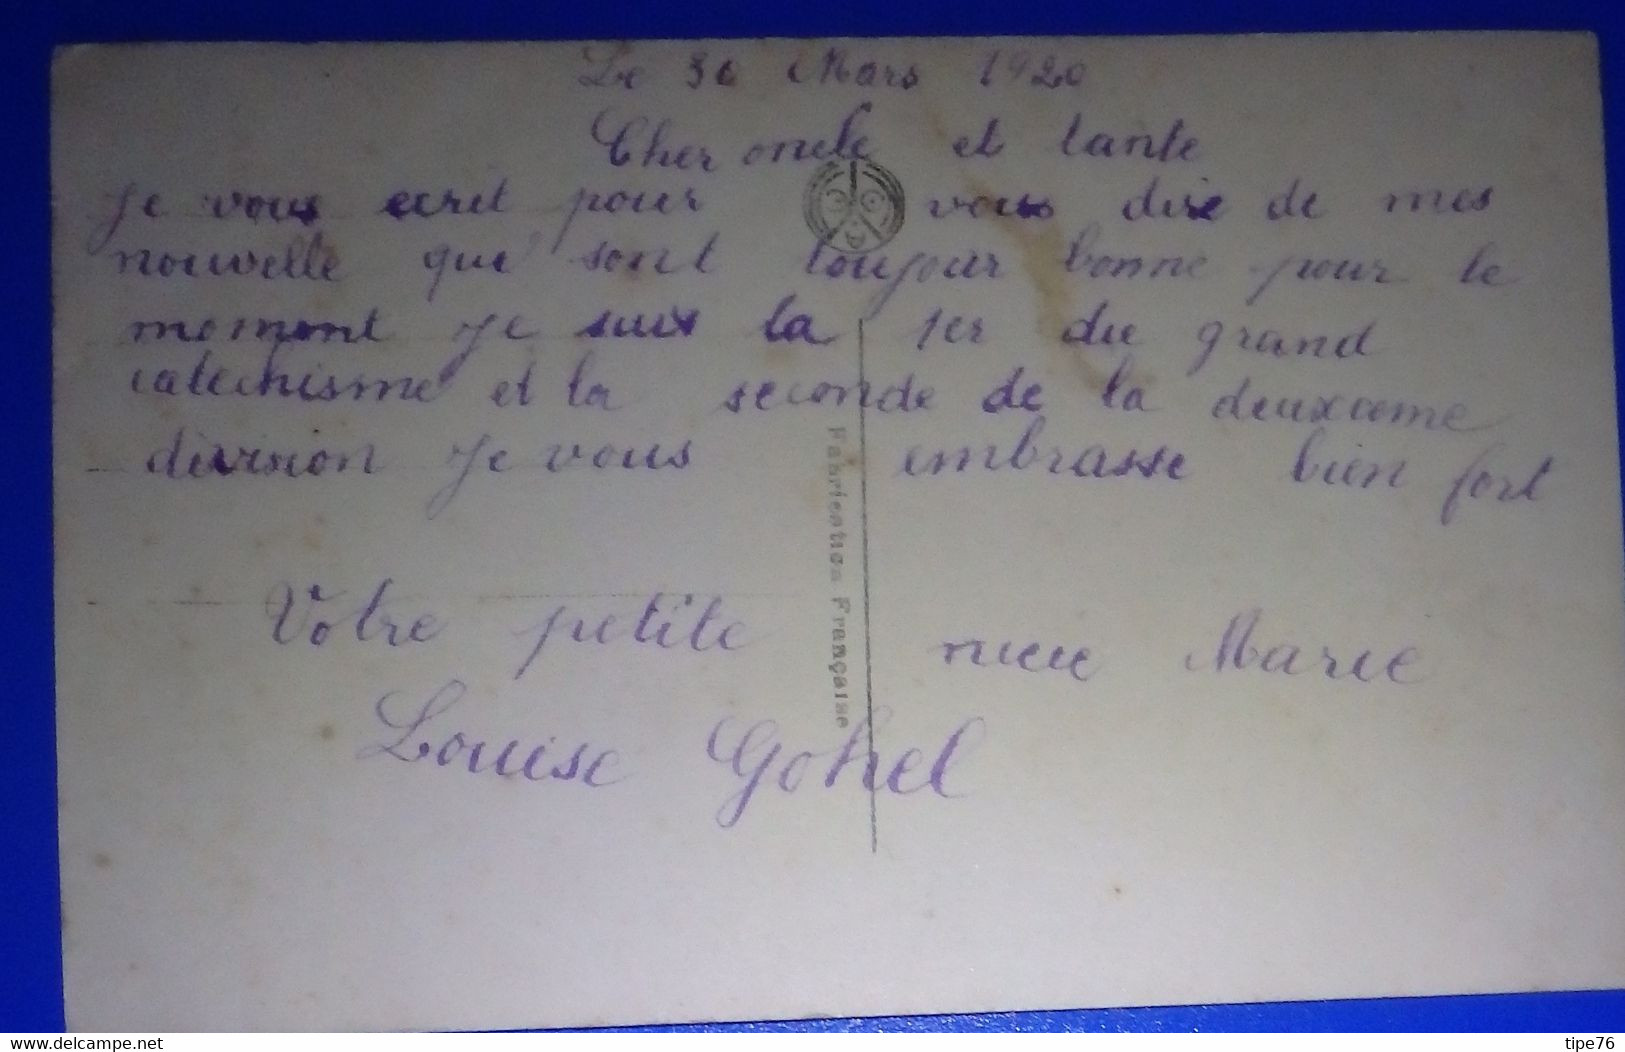 Le 30 Mars 1920
Cher oncle et tante
Je vous ecrit pour vous dire de mes
nouvelle qui sont toujour bonne pour le
moment Je suis la 1er du grand
catechisme et la seconde de la deuxieme
division Je vous embrasse bien fort
Votre petite niece Marie
Louise Gohel
Fabrication Française
www.delcampe.net
tipe76